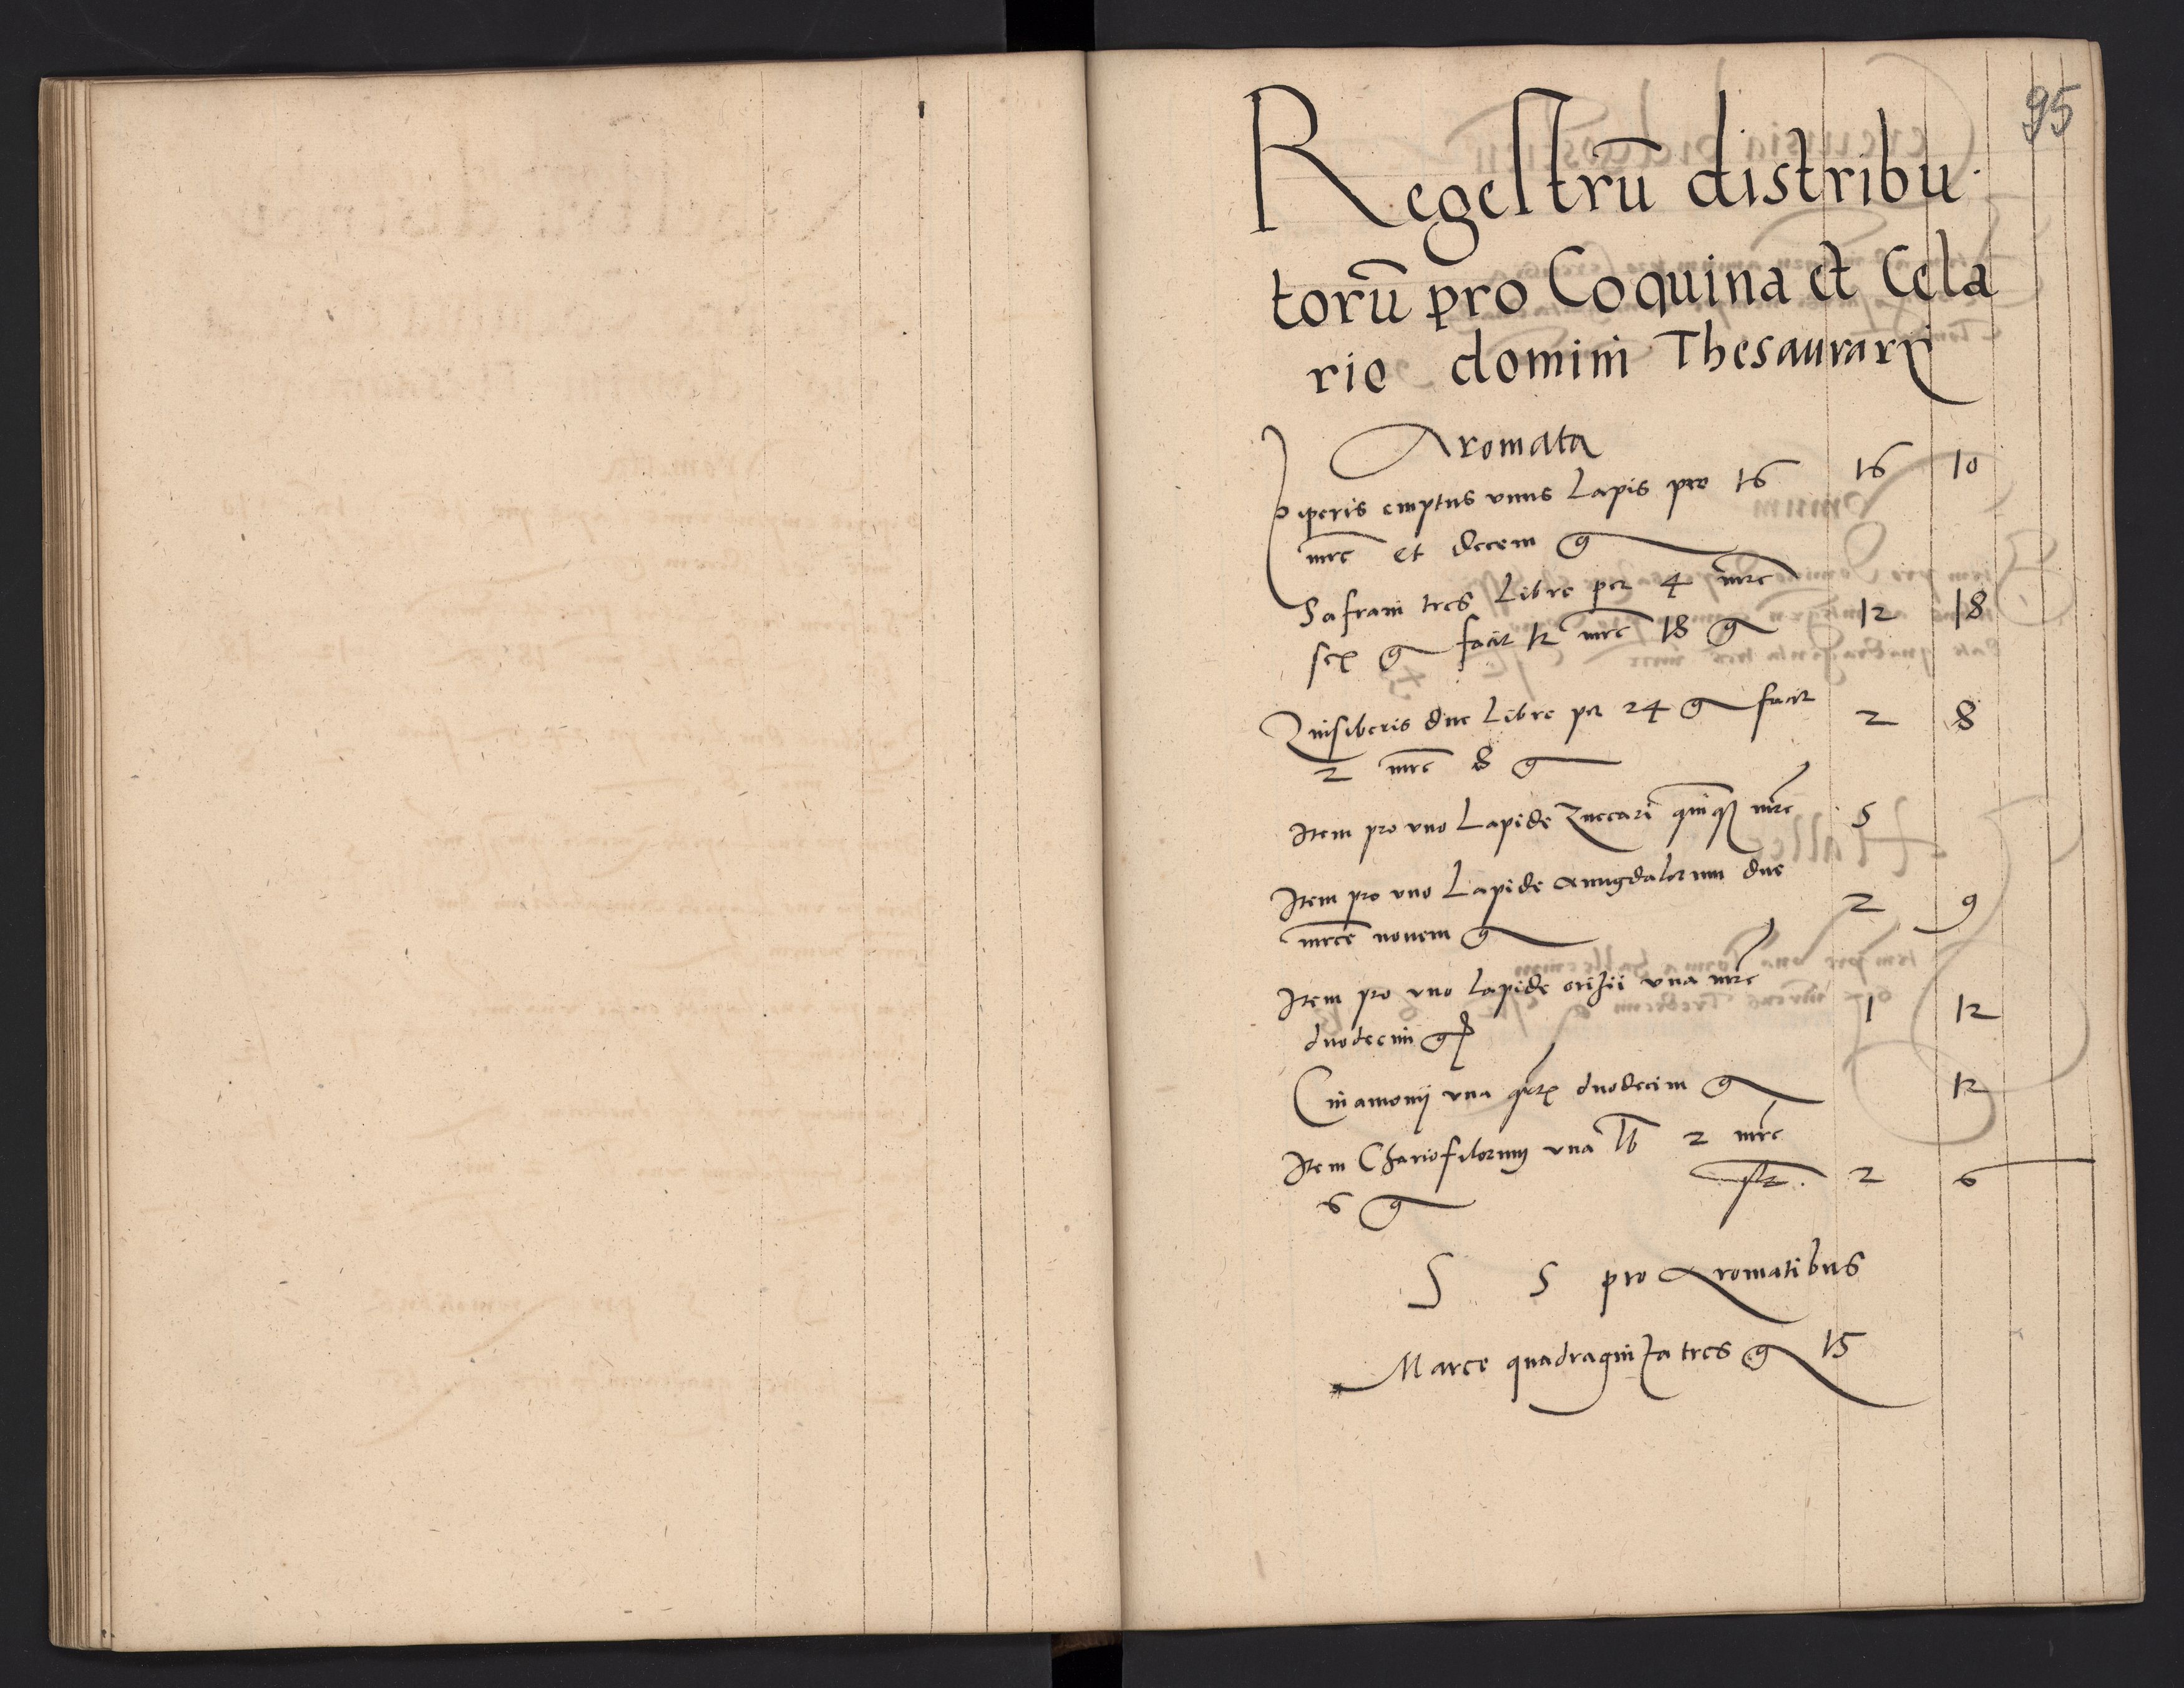 95
Regestrū distribu
torū pro Coquina et Cela
rio domini Thesaurarij
Aromata
Piperis emptus vnus Lapis pro 16 16 10
mrc et decem g
Safrani tres Libre per 4 mrc
sex g facit 12 mrc 18 g 12 18
Zinsiberis due Libre per 24 g facit 2 8
2 mrc 8 g
Item pro vno Lapide Zuccari quinq mrc 5
Item pro vno Lapide Amigdalorum due
mrce novem g 2 9
Item pro vno Lapide orisii vna mrc
duodecim g 1 12
Cinamonij vna duodecim g 12
Item Chariofilorum vna lb 2 mrc
6 g 2 6
S S pro Aromatibus
Marce quadraginta tres g 15